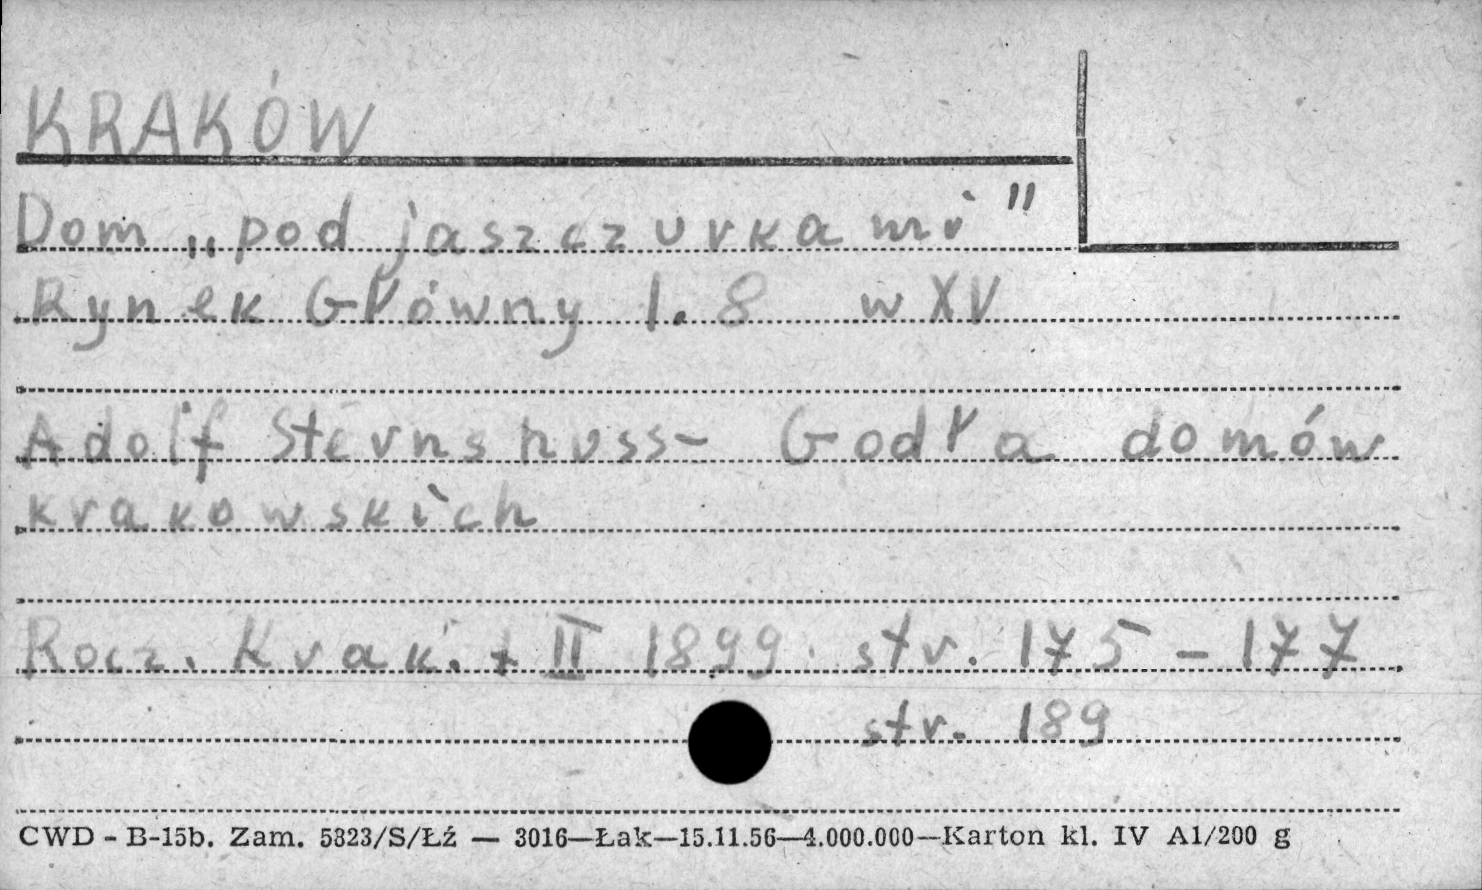 KRAKÓW
Dom „pod jaszczurkami"
Rynek Główny l. 8 w XV
Adolf Sternshuss - Godła domów
krakowskich
Rocz. Krak. t II 1899. str. 175 - 177
str. 189
CWD - B-15b. Zam. 5823/S/Łź — 3016—Łak—15.11.56—4.000.000—Karton kl. IV A1/200 g